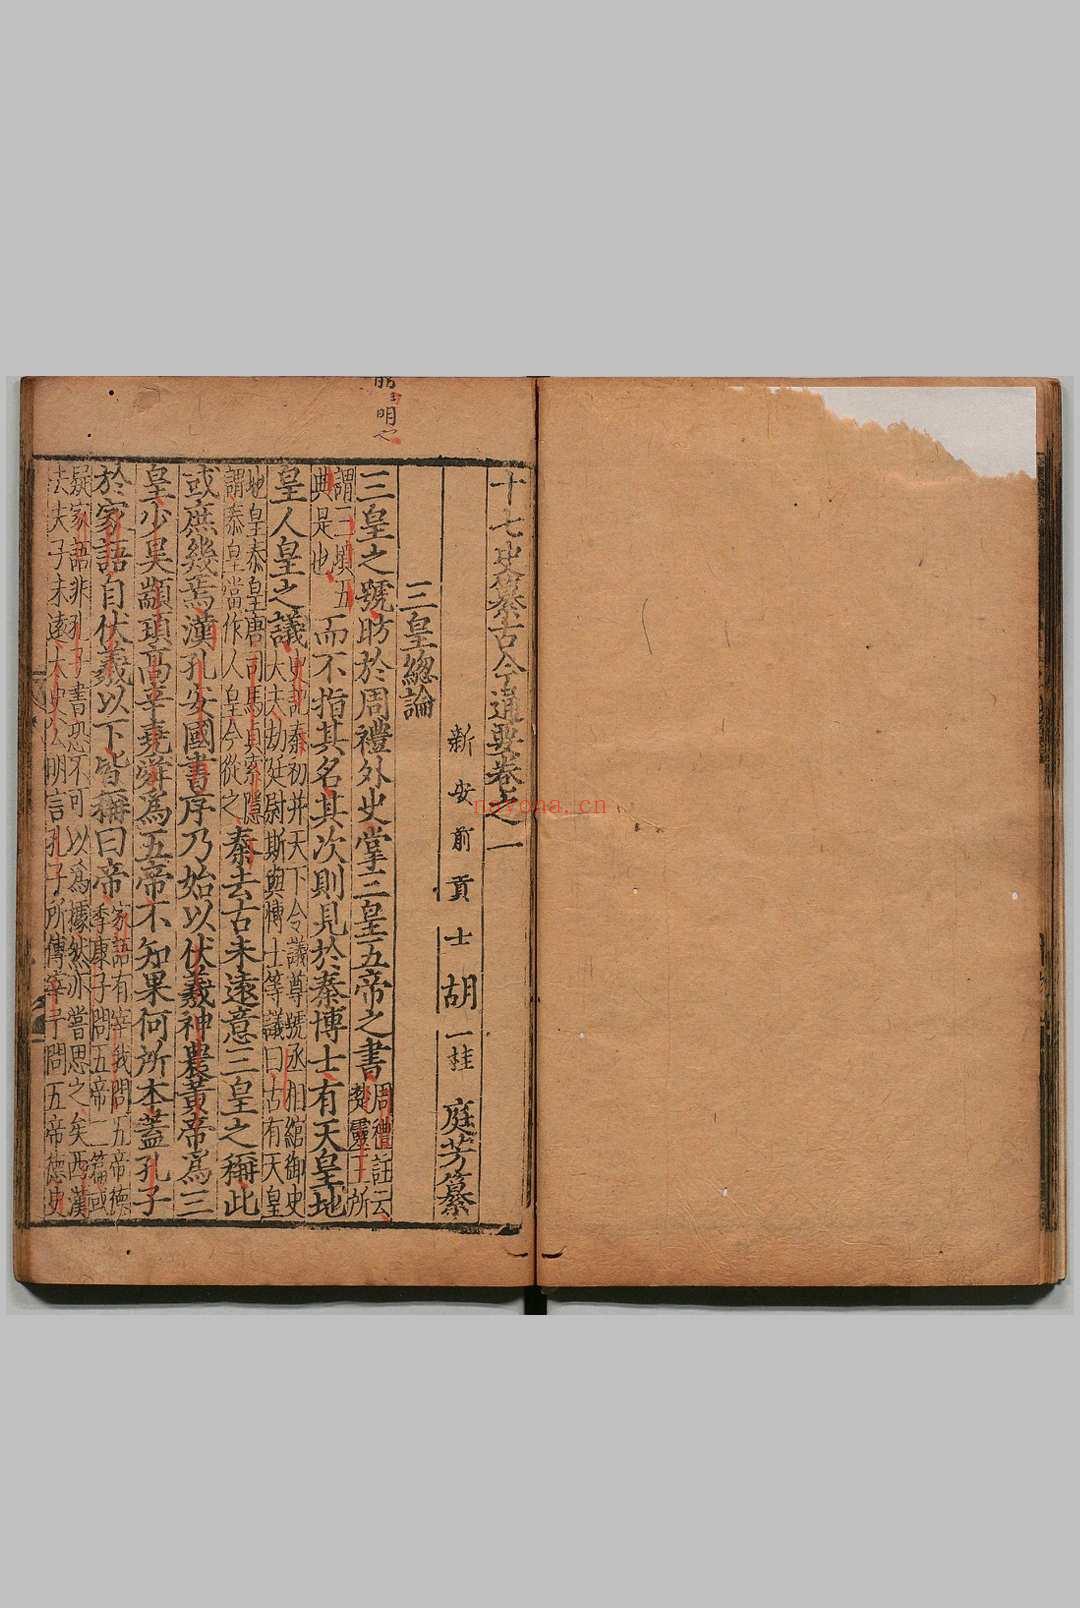 十七史纂古今通要卷之一
新安前貢士胡一桂庭芳纂
三皇總論
三皇之號昉於周禮外史掌三皇五帝之書周禮註云楚靈王所
謂三墳五典是也而不指其名其次則見於秦博士有天皇地
皇人皇之議史記秦初并天下令議尊號丞相綰御史大夫劫廷尉斯與博士等議曰古有天皇
地皇泰皇唐司馬貞索隱謂泰皇當作人皇今從之秦去古未遠意三皇之稱此
或庶幾焉漢孔安國書序乃始以伏羲神農黃帝爲三
皇少昊顓頊高辛堯舜爲五帝不知果何所本蓋孔子
於家語自伏羲以下皆稱曰帝家語有宰我問五帝德季康子問五帝二篇或
疑家語非孔子書恐不可以爲據然亦嘗思之矣西漢
法夫子未遠太史公明言孔子所傳宰予問五帝德史
明
nayona.cn